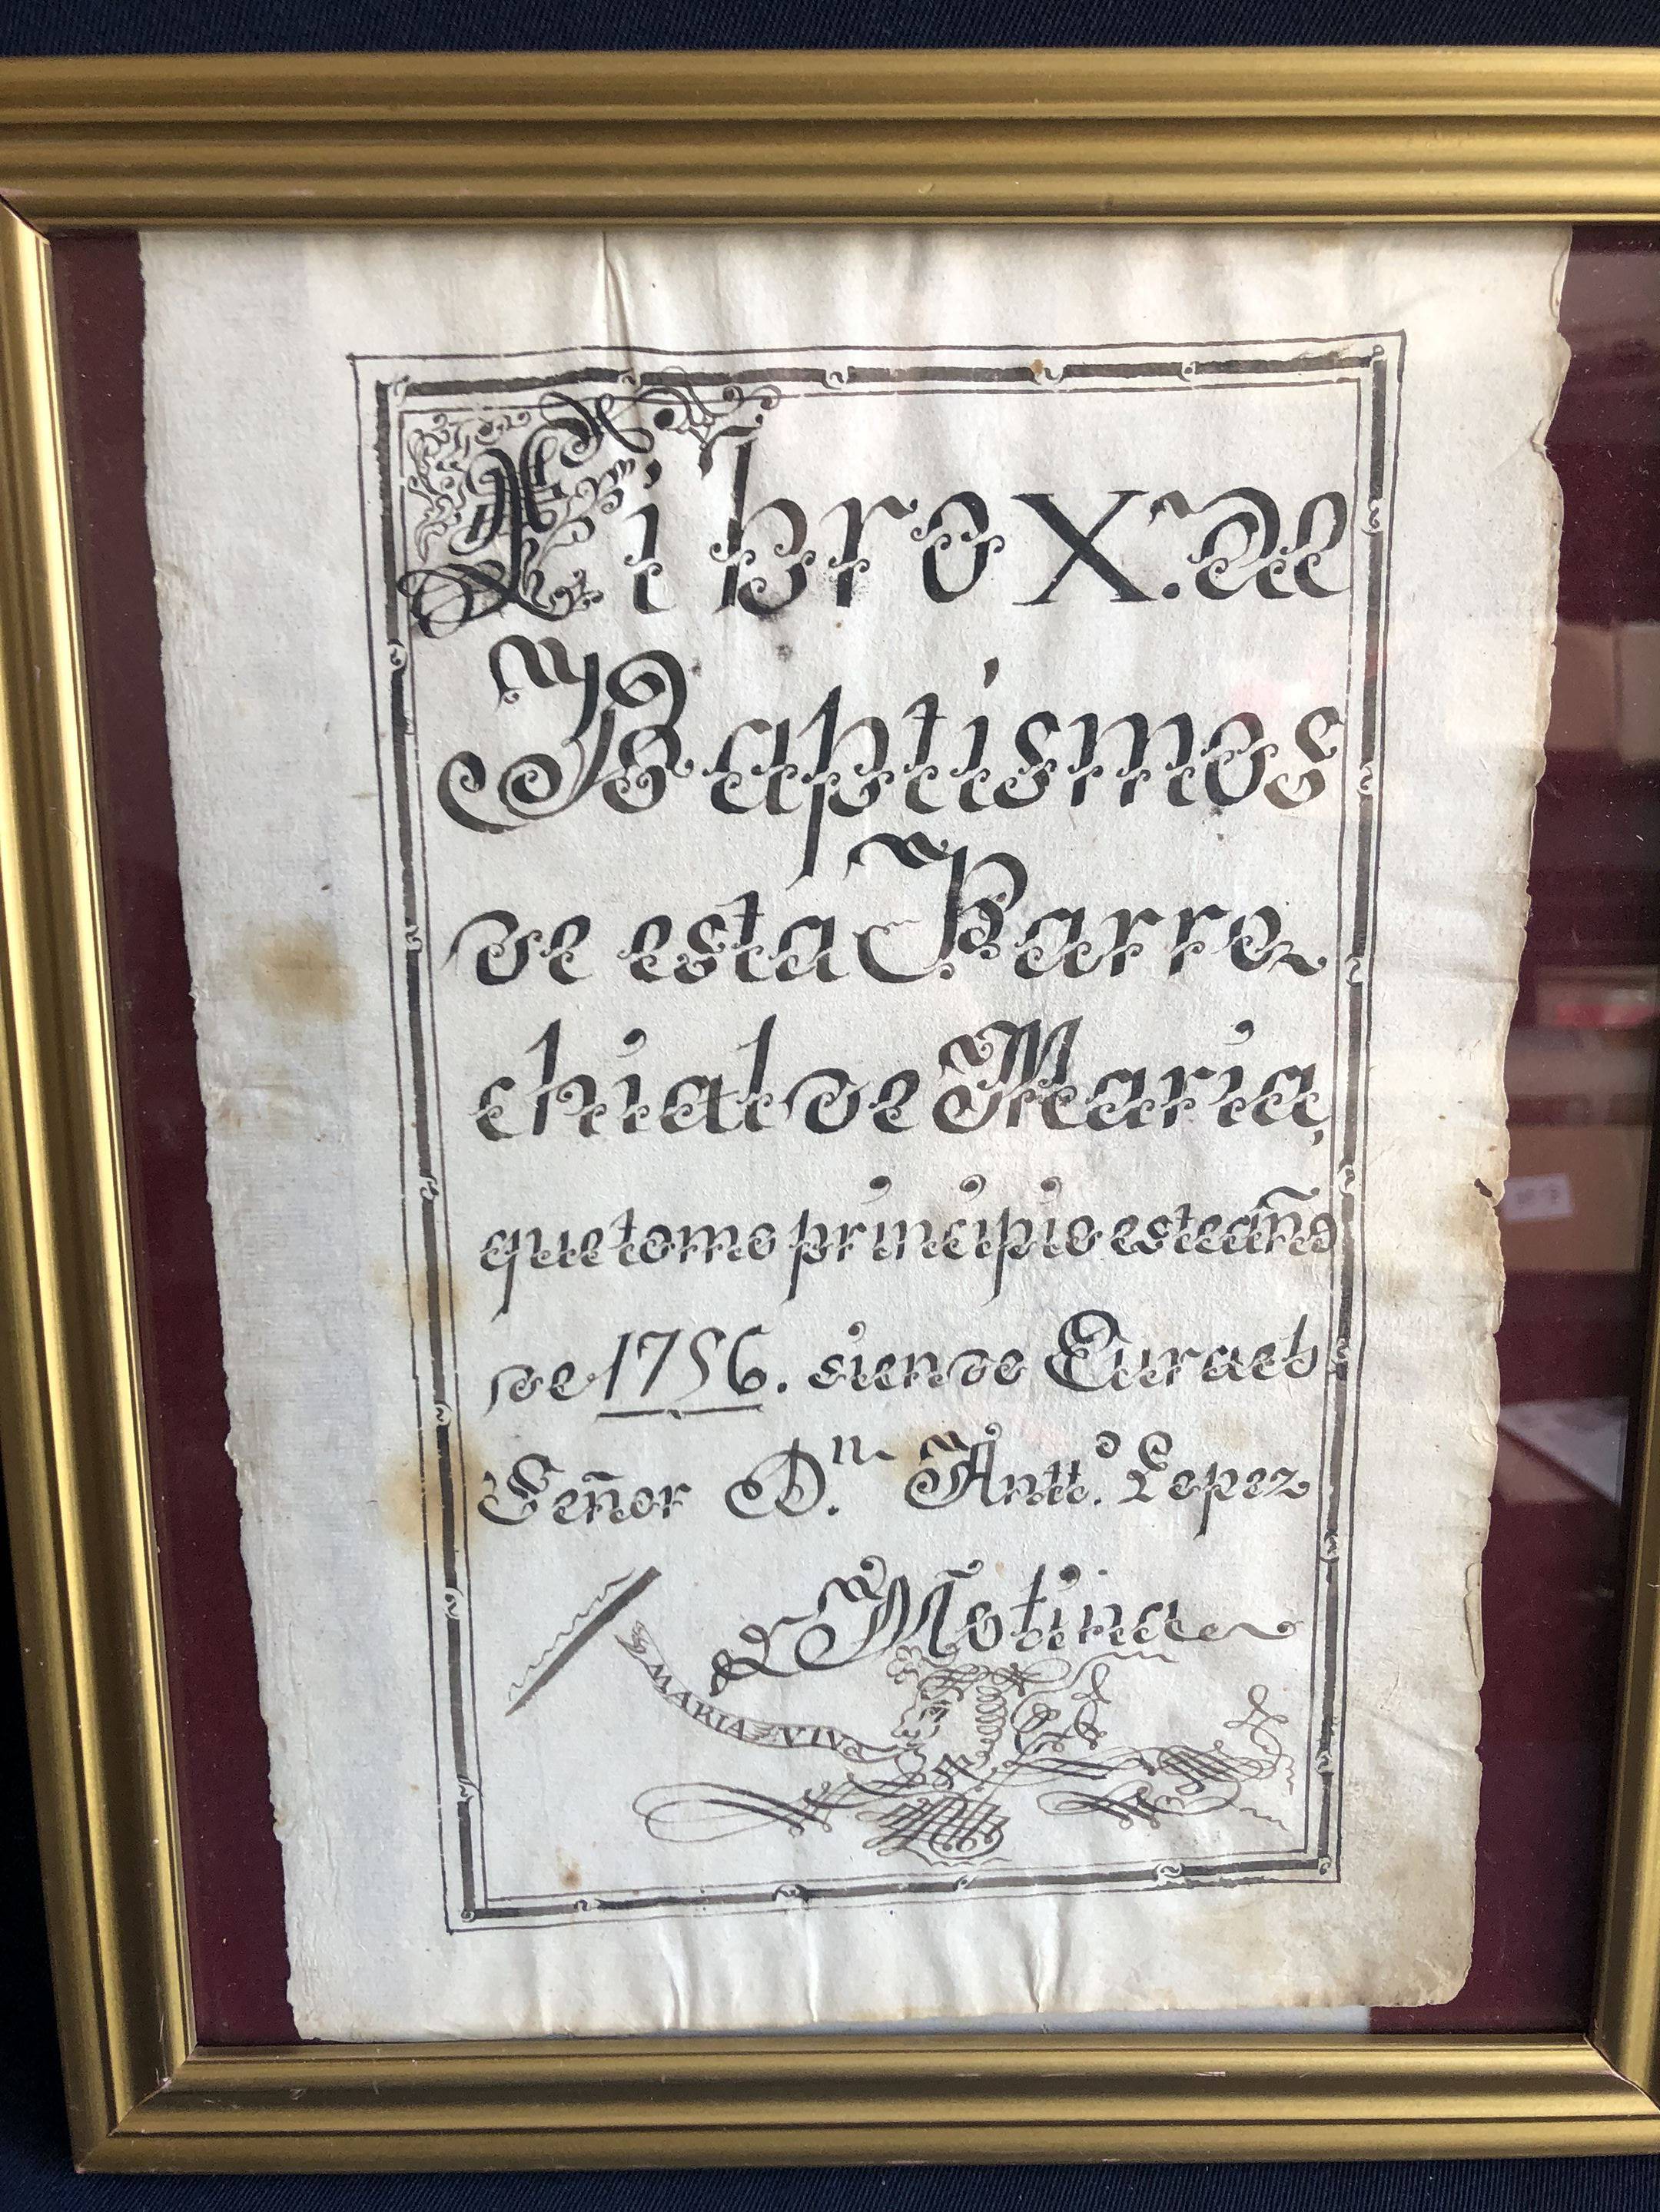 Libro X. de
Baptismos
de esta Parro
chial de Maria,
que tomo principio este año
de 1756. siendo Cura el
Señor D.n Antt.o Lopez
Molina
MARIA VIVA